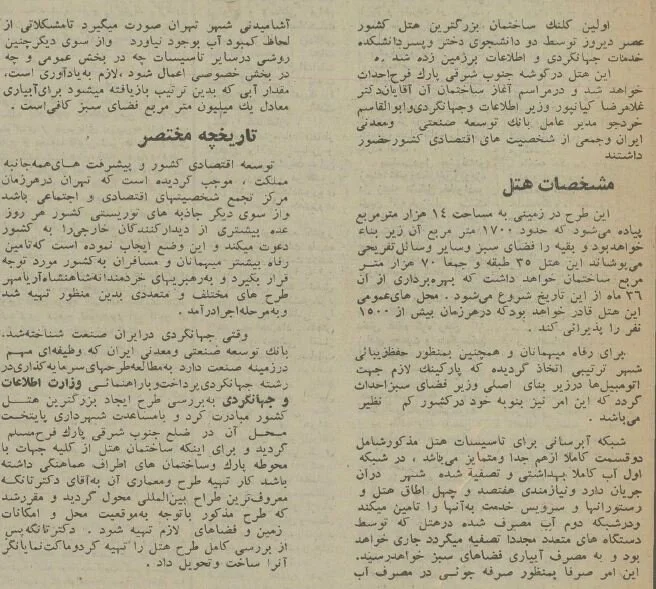 اولین کلنک ساختمان بزرگترین هتل کشور
عصر دیروز توسط دو دانشجوی دختر وپسردانشکده
خدمات جهانگردی و اطلاعات برزمین زده شد .
این هتل درگوشه جنوب شرقی پارك فرح‌احداث
خواهد شد و درمراسم آغاز ساختمان آن آقایان‌دکتر
غلامرضا کیانپور وزیر اطلاعات وجهانگردی‌وابوالقاسم
خردجو مدیر عامل بانك توسعه صنعتی ومعدنی
ایران وجمعی از شخصیت های اقتصادی کشورحضور
داشتند
مشخصات هتل
این طرح در زمینی به مساحت ۱۴ هزار مترمربع
پیاده می‌شود که حدود ۱۷۰۰ متر مربع آن زیر بناء
خواهدبود و بقیه را فضای سبز وسایر وسائل‌تفریحی
می‌پوشاند این هتل ۳۵ طبقه و جمعا ۷۰ هزار متر
مربع ساختمان خواهد داشت که بهره‌برداری از آن
۳۶ ماه از این تاریخ شروع می‌شود . محل های‌عمومی
این هتل قادر خواهد بودکه درهرزمان بیش از ۱۵۰۰
نفر را پذیرائی کند .
برای رفاه میهمانان و همچنین بمنظور حفظزیبائی
شهر ترتیبی اتخاذ گردیده که پارکینك لازم جهت
اتومبیل‌ها درزیر بنای اصلی وزیر فضای سبزاحداث
گردد که این امر نیز بنوبه خود درکشور کم نظیر
می‌باشد .
شبکه آبرسانی برای تاسیسات هتل مذکورشامل
دوقسمت کاملا ازهم جدا ومتمایز می‌باشد ، در شبکه
اول آب کاملا بهداشتی و تصفیه شده شهر درآن
جریان دارد ونیازمندی هفتصد و چهل اطاق هتل و
رستورانها و سرویس خدمت به‌آنها را تامین میکند
ودرشبکه دوم آب مصرف شده درهتل که توسط
دستگاه های متعدد مجددا تصفیه میگردد جاری خواهد
بود و به مصرف آبیاری فضاهای سبز خواهدرسید.
این امر صرفا بمنظور صرفه جوئی در مصرف آب
آشامیدنی شهر تهران صورت میگیرد تامشکلاتی از
لحاظ کمبود آب بوجود نیاورد وواز سوی دیگرچنین
روشی درسایر تاسیسات چه در بخش عمومی و چه
در بخش خصوصی اعمال شود ،لازم به‌یادآوری است،
مقدار آبی که بدین ترتیب بازیافته میشود برای‌آبیاری
معادل یك میلیون متر مربع فضای سبز کافی‌است .
تاریخچه مختصر
توسعه اقتصادی کشور و پیشرفت های‌همه‌جانبه
مملکت ، موجب گردیده است که تهران درهرزمان
مرکز تجمع شخصیتهای اقتصادی و اجتماعی باشد
واز سوی دیگر جاذبه های توریستی کشور هر روز
عده بیشتری از دیدارکنندگان خارجی‌را به کشور
دعوت میکند و این وضع ایجاب نموده است که‌تامین
رفاه بیشتر میهمانان و مسافران به‌کشور مورد توجه
قرار بگیرد و به‌رهبریهای خردمندانه‌شاهنشاه‌آریامهر
طرح های مختلف و متعددی بدین منظور تهیه شد
وبه‌مرحله‌اجرادرآمد .
وقتی جهانگردی درایران صنعت شناخته‌شد.
بانك توسعه صنعتی ومعدنی ایران که وظیفه‌ای مهم
درزمینه صنعت دارد به‌مطالعه‌طرحهای‌سرمایه‌گذاری‌در
رشته جهانگردی‌پرداخت‌وباراهنمائی وزارت اطلاعات
و جهانگردی به‌بررسی طرح ایجاد بزرگترین هتل
کشور مبادرت کرد و بامساعدت شهرداری پایتخت
محل آن در ضلع جنوب شرقی پارك فرح‌مسلم
گردید و برای اینکه ساختمان هتل از کلیه جهات با
محوطه پارك وساختمان های اطراف هماهنگی داشته
باشد کار تهیه طرح ومعماری آن به‌آقای دکترتانگه
معروف‌ترین طراح بین‌المللی محول گردید و مقررشد
که طرح مذکور باتوجه به‌موقعیت محل و امکانات
زمین و فضاهای لازم تهیه شود . دکترتانگه‌پس
از بررسی کامل طرح هتل را تهیه کردوماکت‌نمایانگر
آنرا ساخت وتحویل داد .